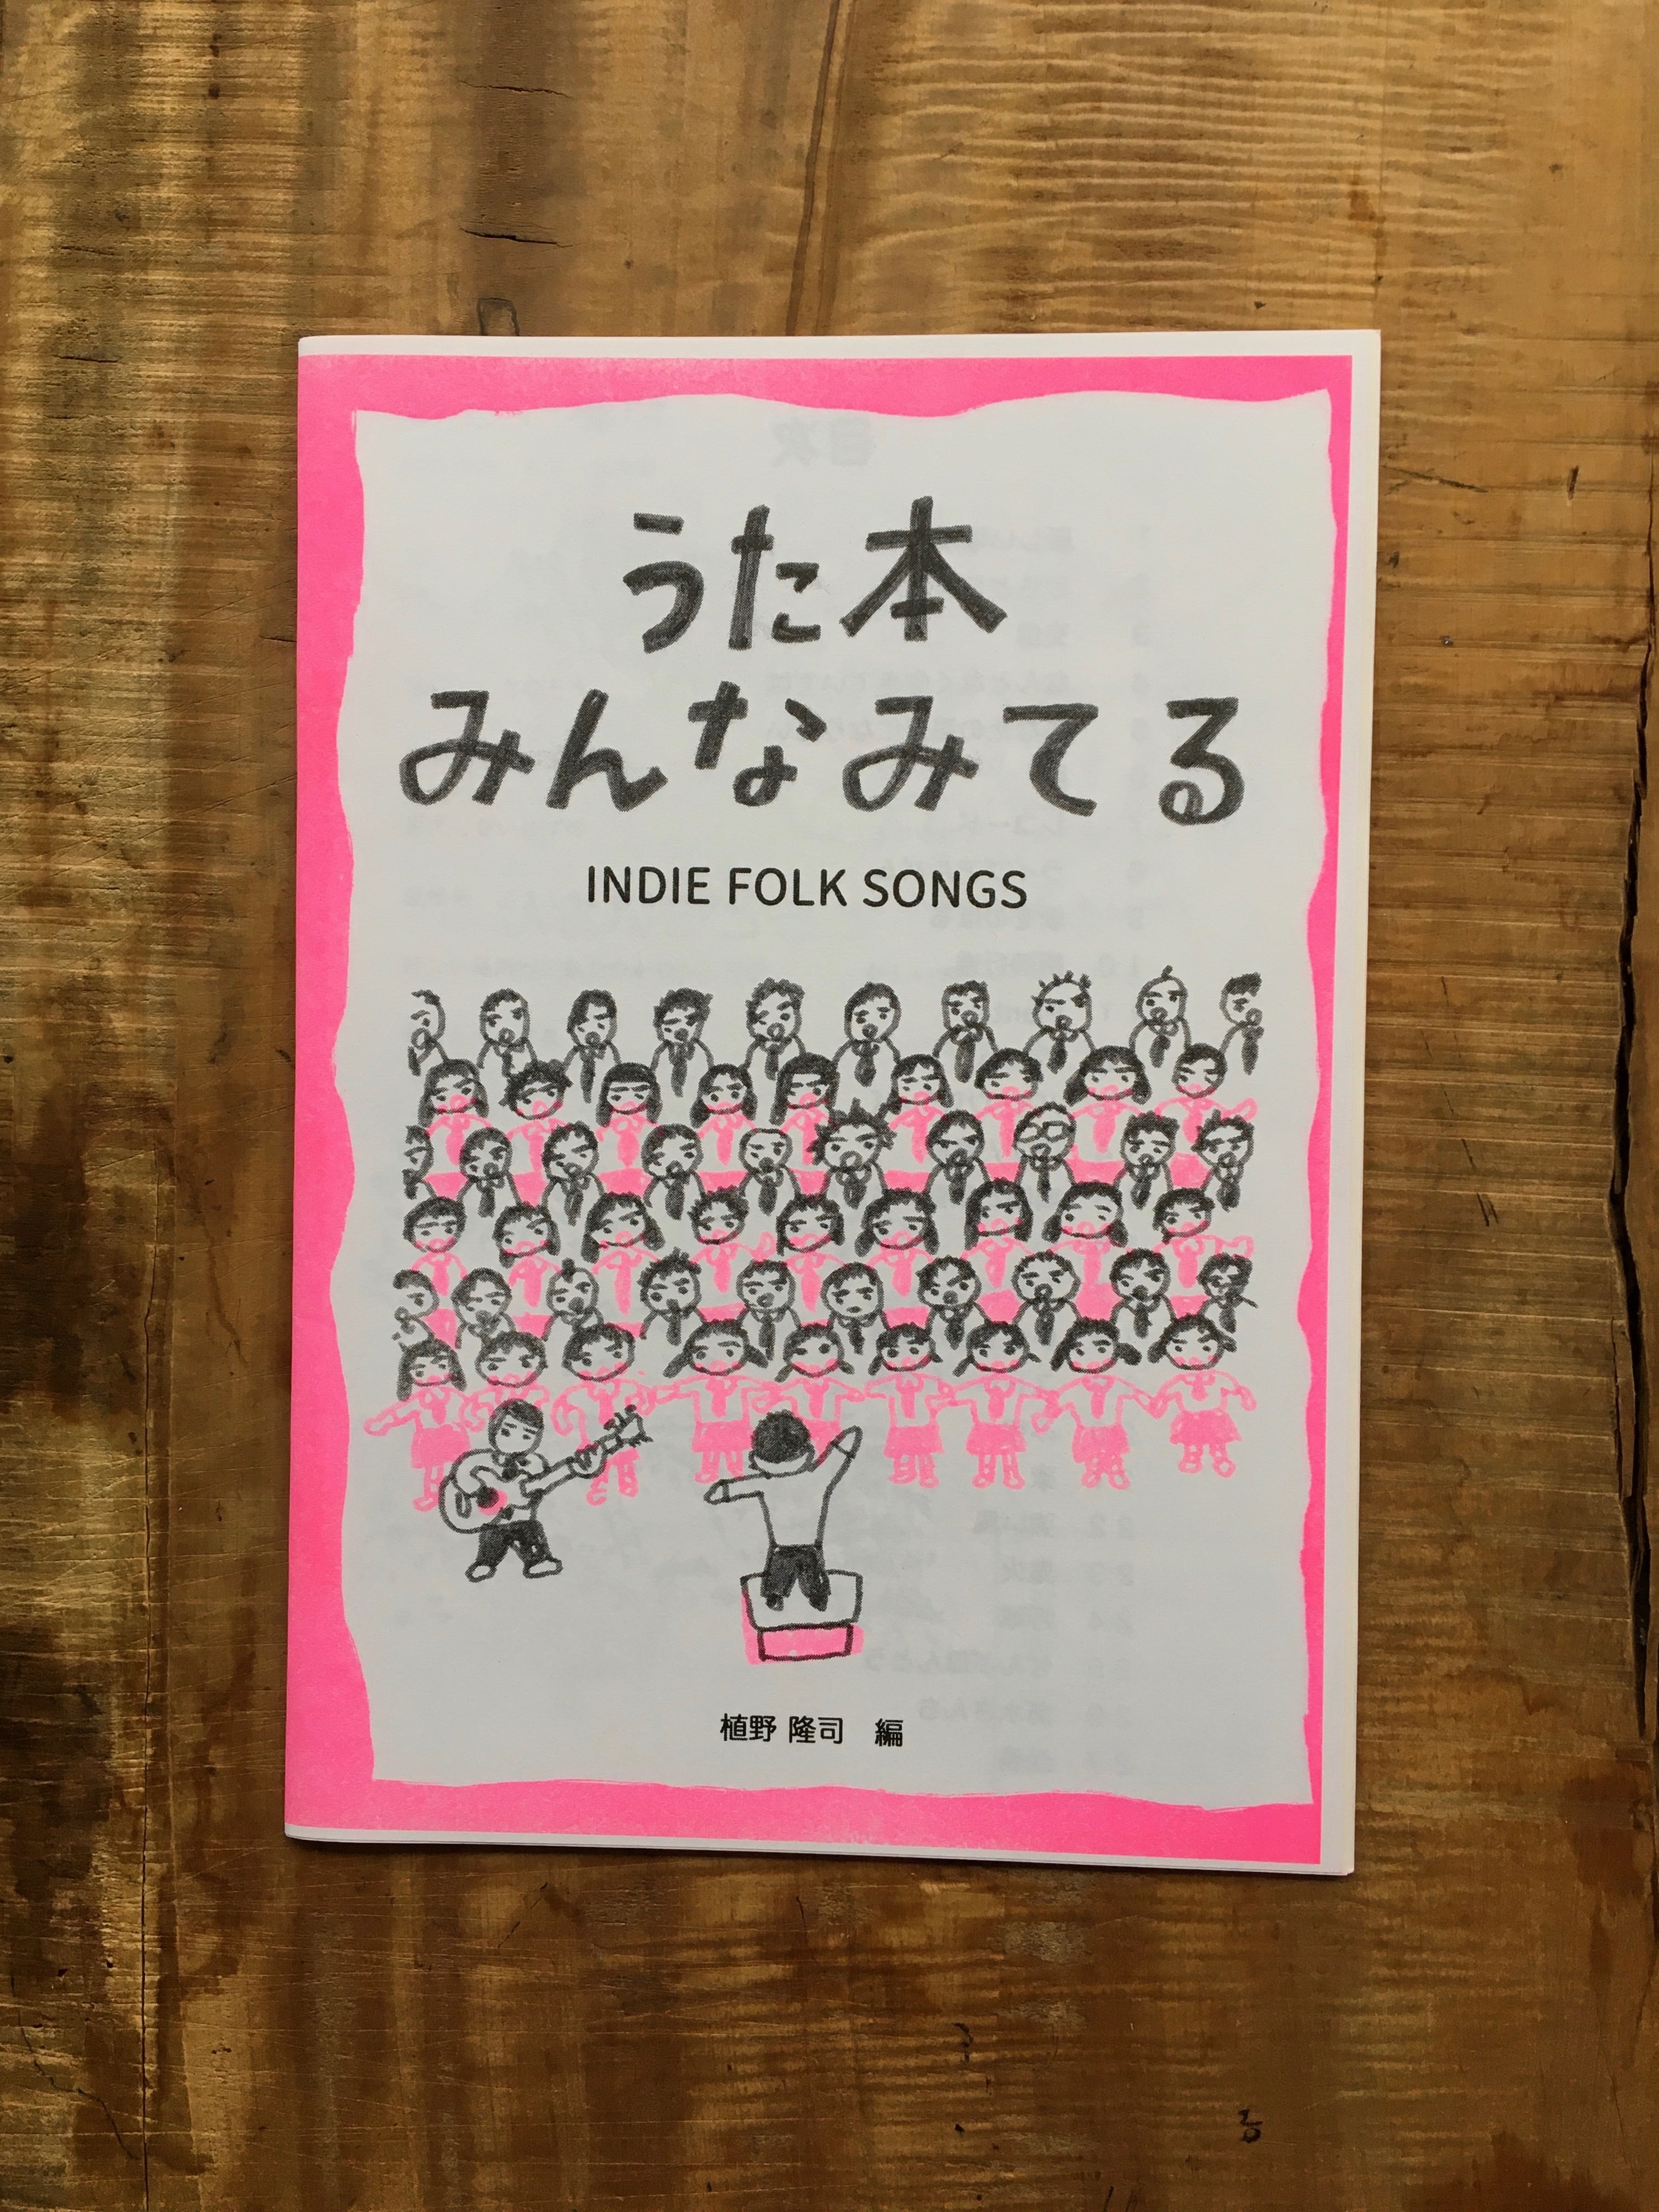 うた本
みんなみてる
INDIE FOLK SONGS
植野 隆司 編